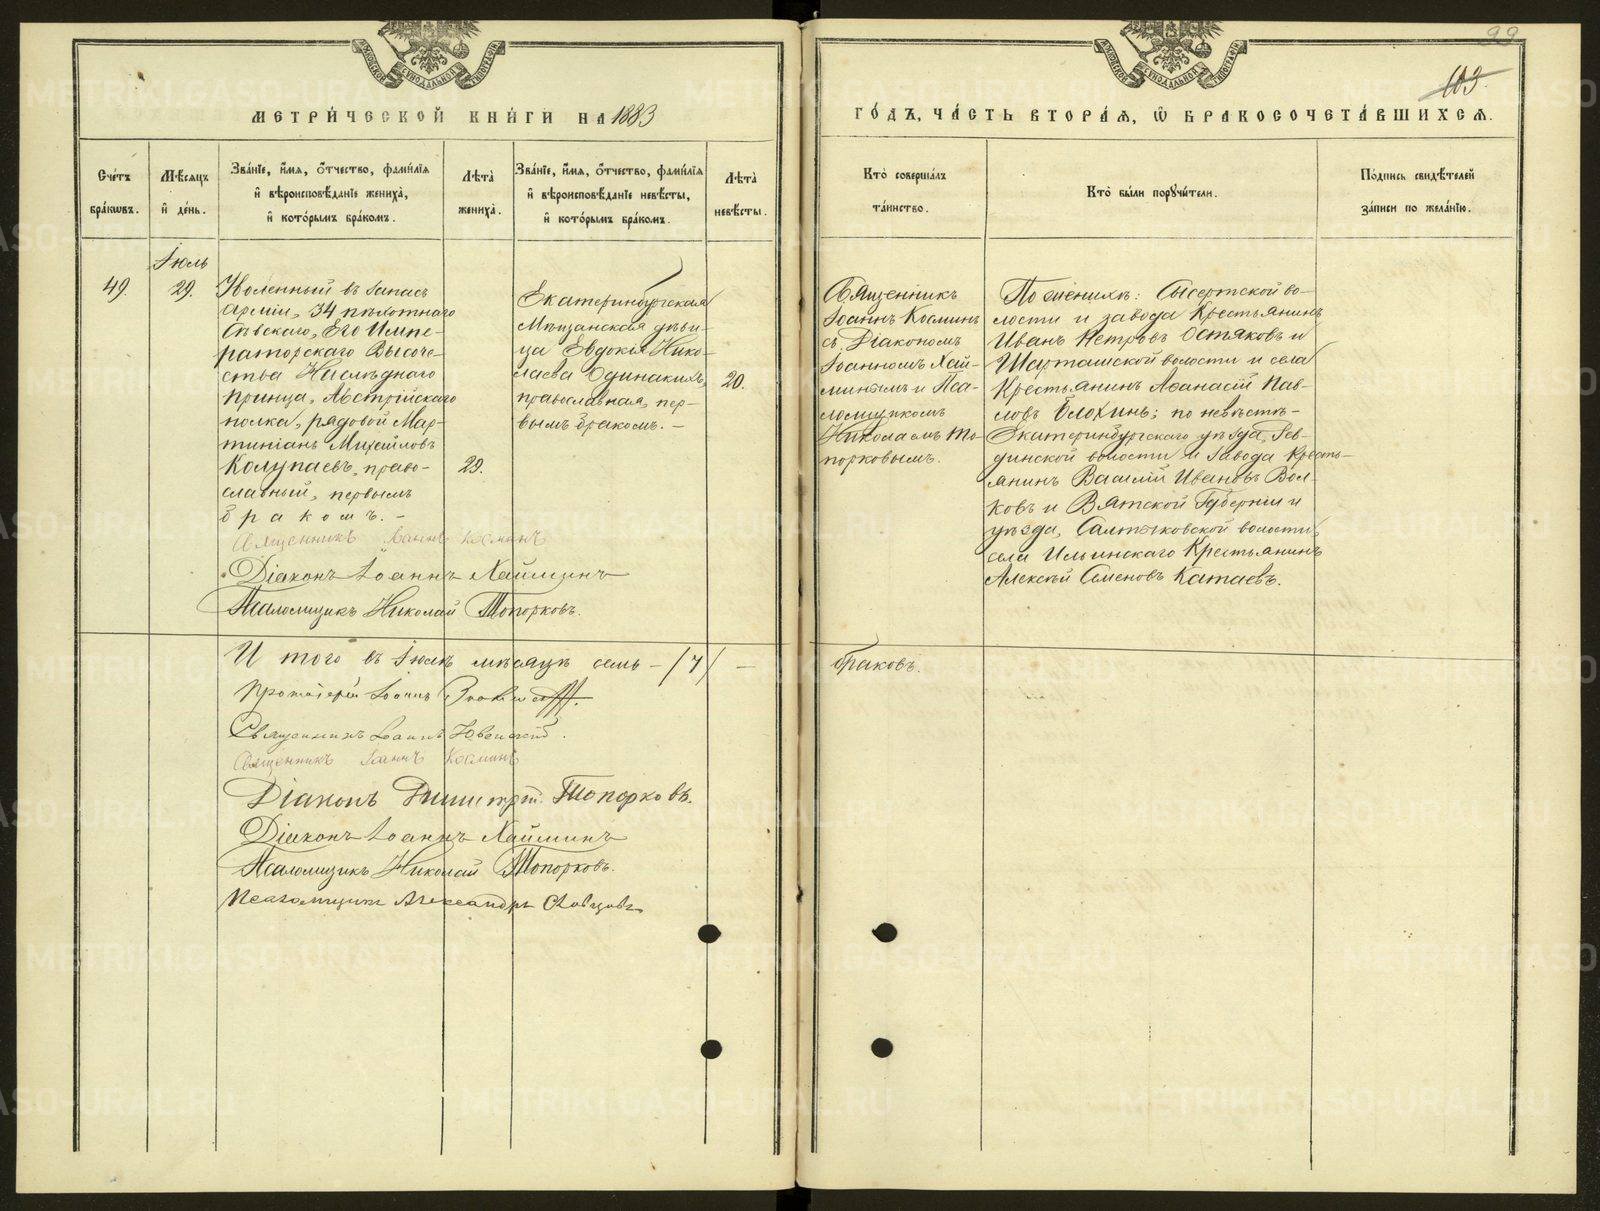 99
103.
МЕТРИ́ЧЕСКОЙ КНИ́ГИ НА 1883
ГО́ДЪ, ЧА́СТЬ ВТОРА́Я, Ѽ БРАКОСОЧЕТА́ВШИХСЯ.
Сче́тъ
бра́ковъ.
Мѣ́сяцъ
и҆ де́нь.
Зва́нїе, и҆́мя, ѻ҆́тчество, фами́лїя
и҆ вѣроисповѣ́данїе жениха̀,
и҆ кото́рымъ бра́комъ.
Лѣта̀
жениха̀.
Зва́нїе, и҆́мя, ѻ҆́тчество, фами́лїя
и҆ вѣроисповѣ́данїе невѣ́сты,
и҆ кото́рымъ бра́комъ.
Лѣта̀
невѣ́сты.
Кто̀ соверша́лъ
та́инство.
Кто̀ бы́ли поручи́тели.
По́дпись свидѣ́телей
за́писи по жела́нїю.
Іюль
49.
29.
Уволенный въ запасъ
арміи, 34 пѣхотнаго
Сѣвскаго, Его Импе-
раторскаго Высоче-
ства Наслѣднаго
Принца, Австрійскаго
полка, рядовой Мар-
тиніанъ Михайловъ
Колупаевъ, право-
славный, первымъ
бракомъ. -
29.
Екатеринбургская
Мѣщанская дѣви-
ца Евдокія Нико-
лаева Одинакихъ,
православная, пер-
вымъ бракомъ. -
20.
Священникъ
Іоаннъ Косминъ
съ Діакономъ
Іоанномъ Хай-
минымъ и Пса-
ломщикомъ
Николаемъ То-
порковымъ.
По женихѣ: Сысертской во-
лости и завода Крестьянинъ
Иванъ Петровъ Остяковъ и
Шарташской волости и села
Крестьянинъ Аѳанасій Пав-
ловъ Блохинъ; по невѣстѣ-
Екатеринбургскаго уѣзда,
динской волости и завода Кресть-
янинъ Василій Ивановъ Вол-
ковъ и Вятской Губерніи и
уѣзда, Салтыковской волости,
села Ильинскаго Крестьянинъ
Алексѣй Семеновъ Катаевъ.
Священникъ Іоаннъ Косминъ
Діаконъ Іоаннъ Хайминъ
Псаломщикъ Николай Топорковъ.
Итого въ Іюлѣ мѣсяцѣ семь - /7/ - браковъ.
Протоіерей Іоаннъ
Священникъ Іоаннъ
Священникъ Іоаннъ Косминъ
Діаконъ Димитрій Топорковъ.
Діаконъ Іоаннъ Хайминъ
Псаломщикъ Николай Топорковъ.
Псаломщикъ Александръ Словцовъ
METRIKI.GASO-URAL.RU